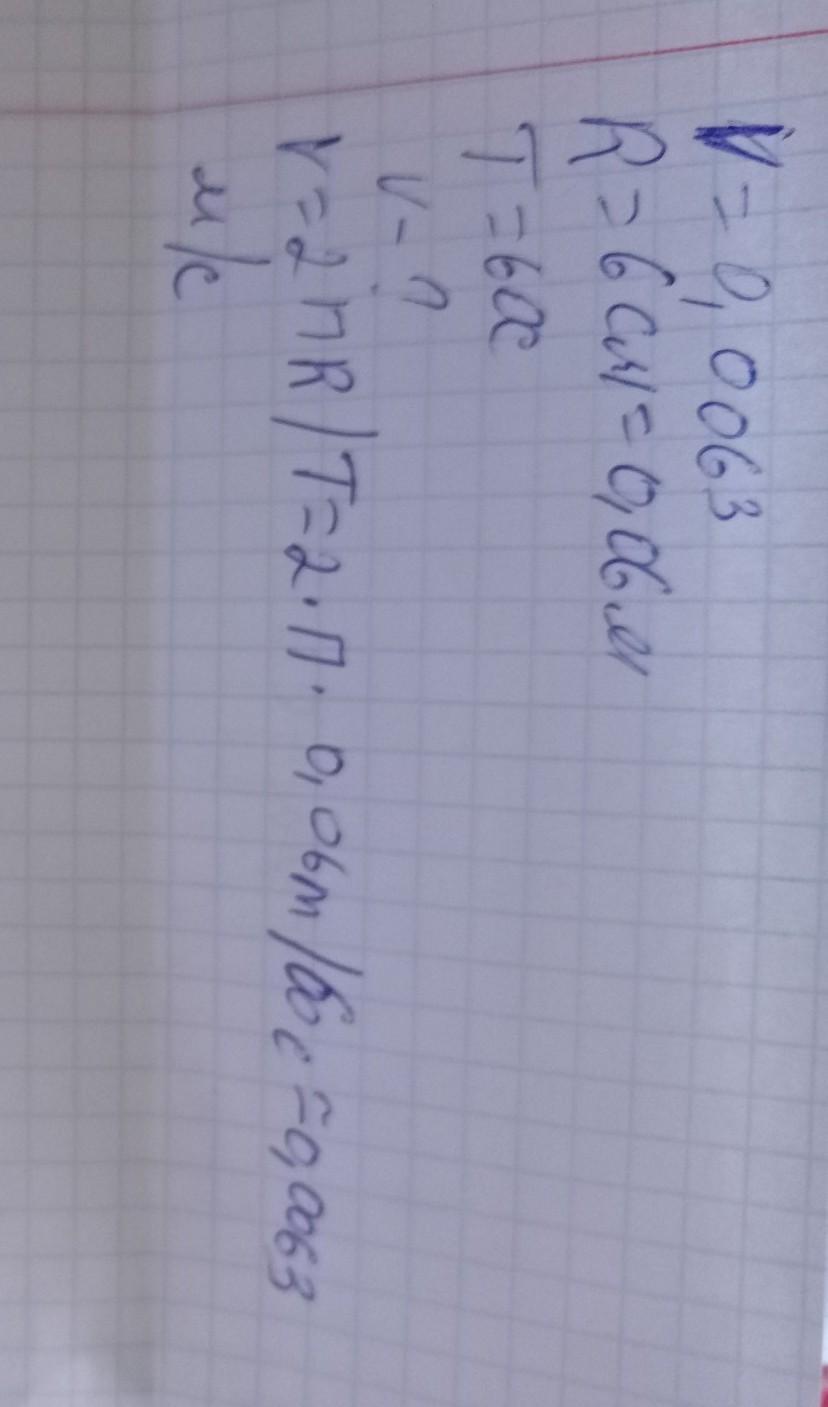 V = 0,0063
R = 6 см = 0,06 м
T = 60с
v - ?
v = 2 п R / T = 2 · П · 0,06 m / 60 с = 0,0063
м/с